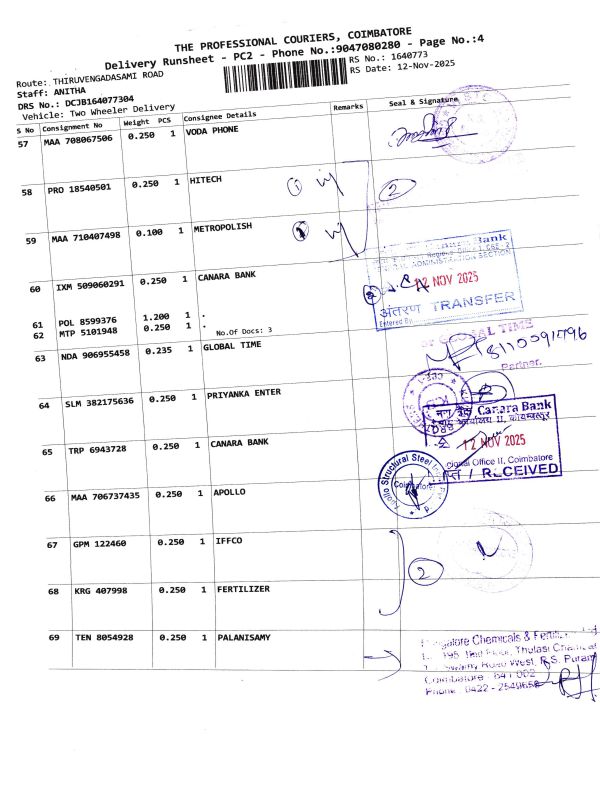 THE PROFESSIONAL COURIERS, COIMBATORE
Delivery Runsheet - PC2 - Phone No.:9047080280 - Page No.:4
Route: THIRUVENGADASAMI ROAD
Staff: ANITHA
DRS No.: DCJB164077304
Vehicle: Two Wheeler Delivery
RS No.: 1640773
RS Date: 12-Nov-2025
S No Consignment No Weight PCS Consignee Details Remarks Seal & Signature
57 MAA 708067506 0.250 1 VODA PHONE
58 PRO 18540501 0.250 1 HITECH
1
2
59 MAA 710407498 0.100 1 METROPOLISH
1
60 IXM 509060291 0.250 1 CANARA BANK
Bank
ADMINISTRATION SECTION
12 NOV 2025
अंतरण TRANSFER
Entered By
61 POL 8599376 1.200 1 .
62 MTP 5101948 0.250 1 .
No.Of Docs: 3
63 NDA 906955458 0.235 1 GLOBAL TIME
GLOBAL TIME
Partner.
64 SLM 382175636 0.250 1 PRIYANKA ENTER
2
65 TRP 6943728 0.250 1 CANARA BANK
Canara Bank
कार्यालय II, कोयम्बत्तूर
12 NOV 2025
Office II, Coimbatore
/ RECEIVED
66 MAA 706737435 0.250 1 APOLLO
Apollo Structural Steel
Coimbatore
67 GPM 122460 0.250 1 IFFCO
2
68 KRG 407998 0.250 1 FERTILIZER
69 TEN 8054928 0.250 1 PALANISAMY
Mangalore Chemicals &
Thulasi
West, R.S. Puram
Coimbatore - 641 002
Phone : 0422 - 2549658